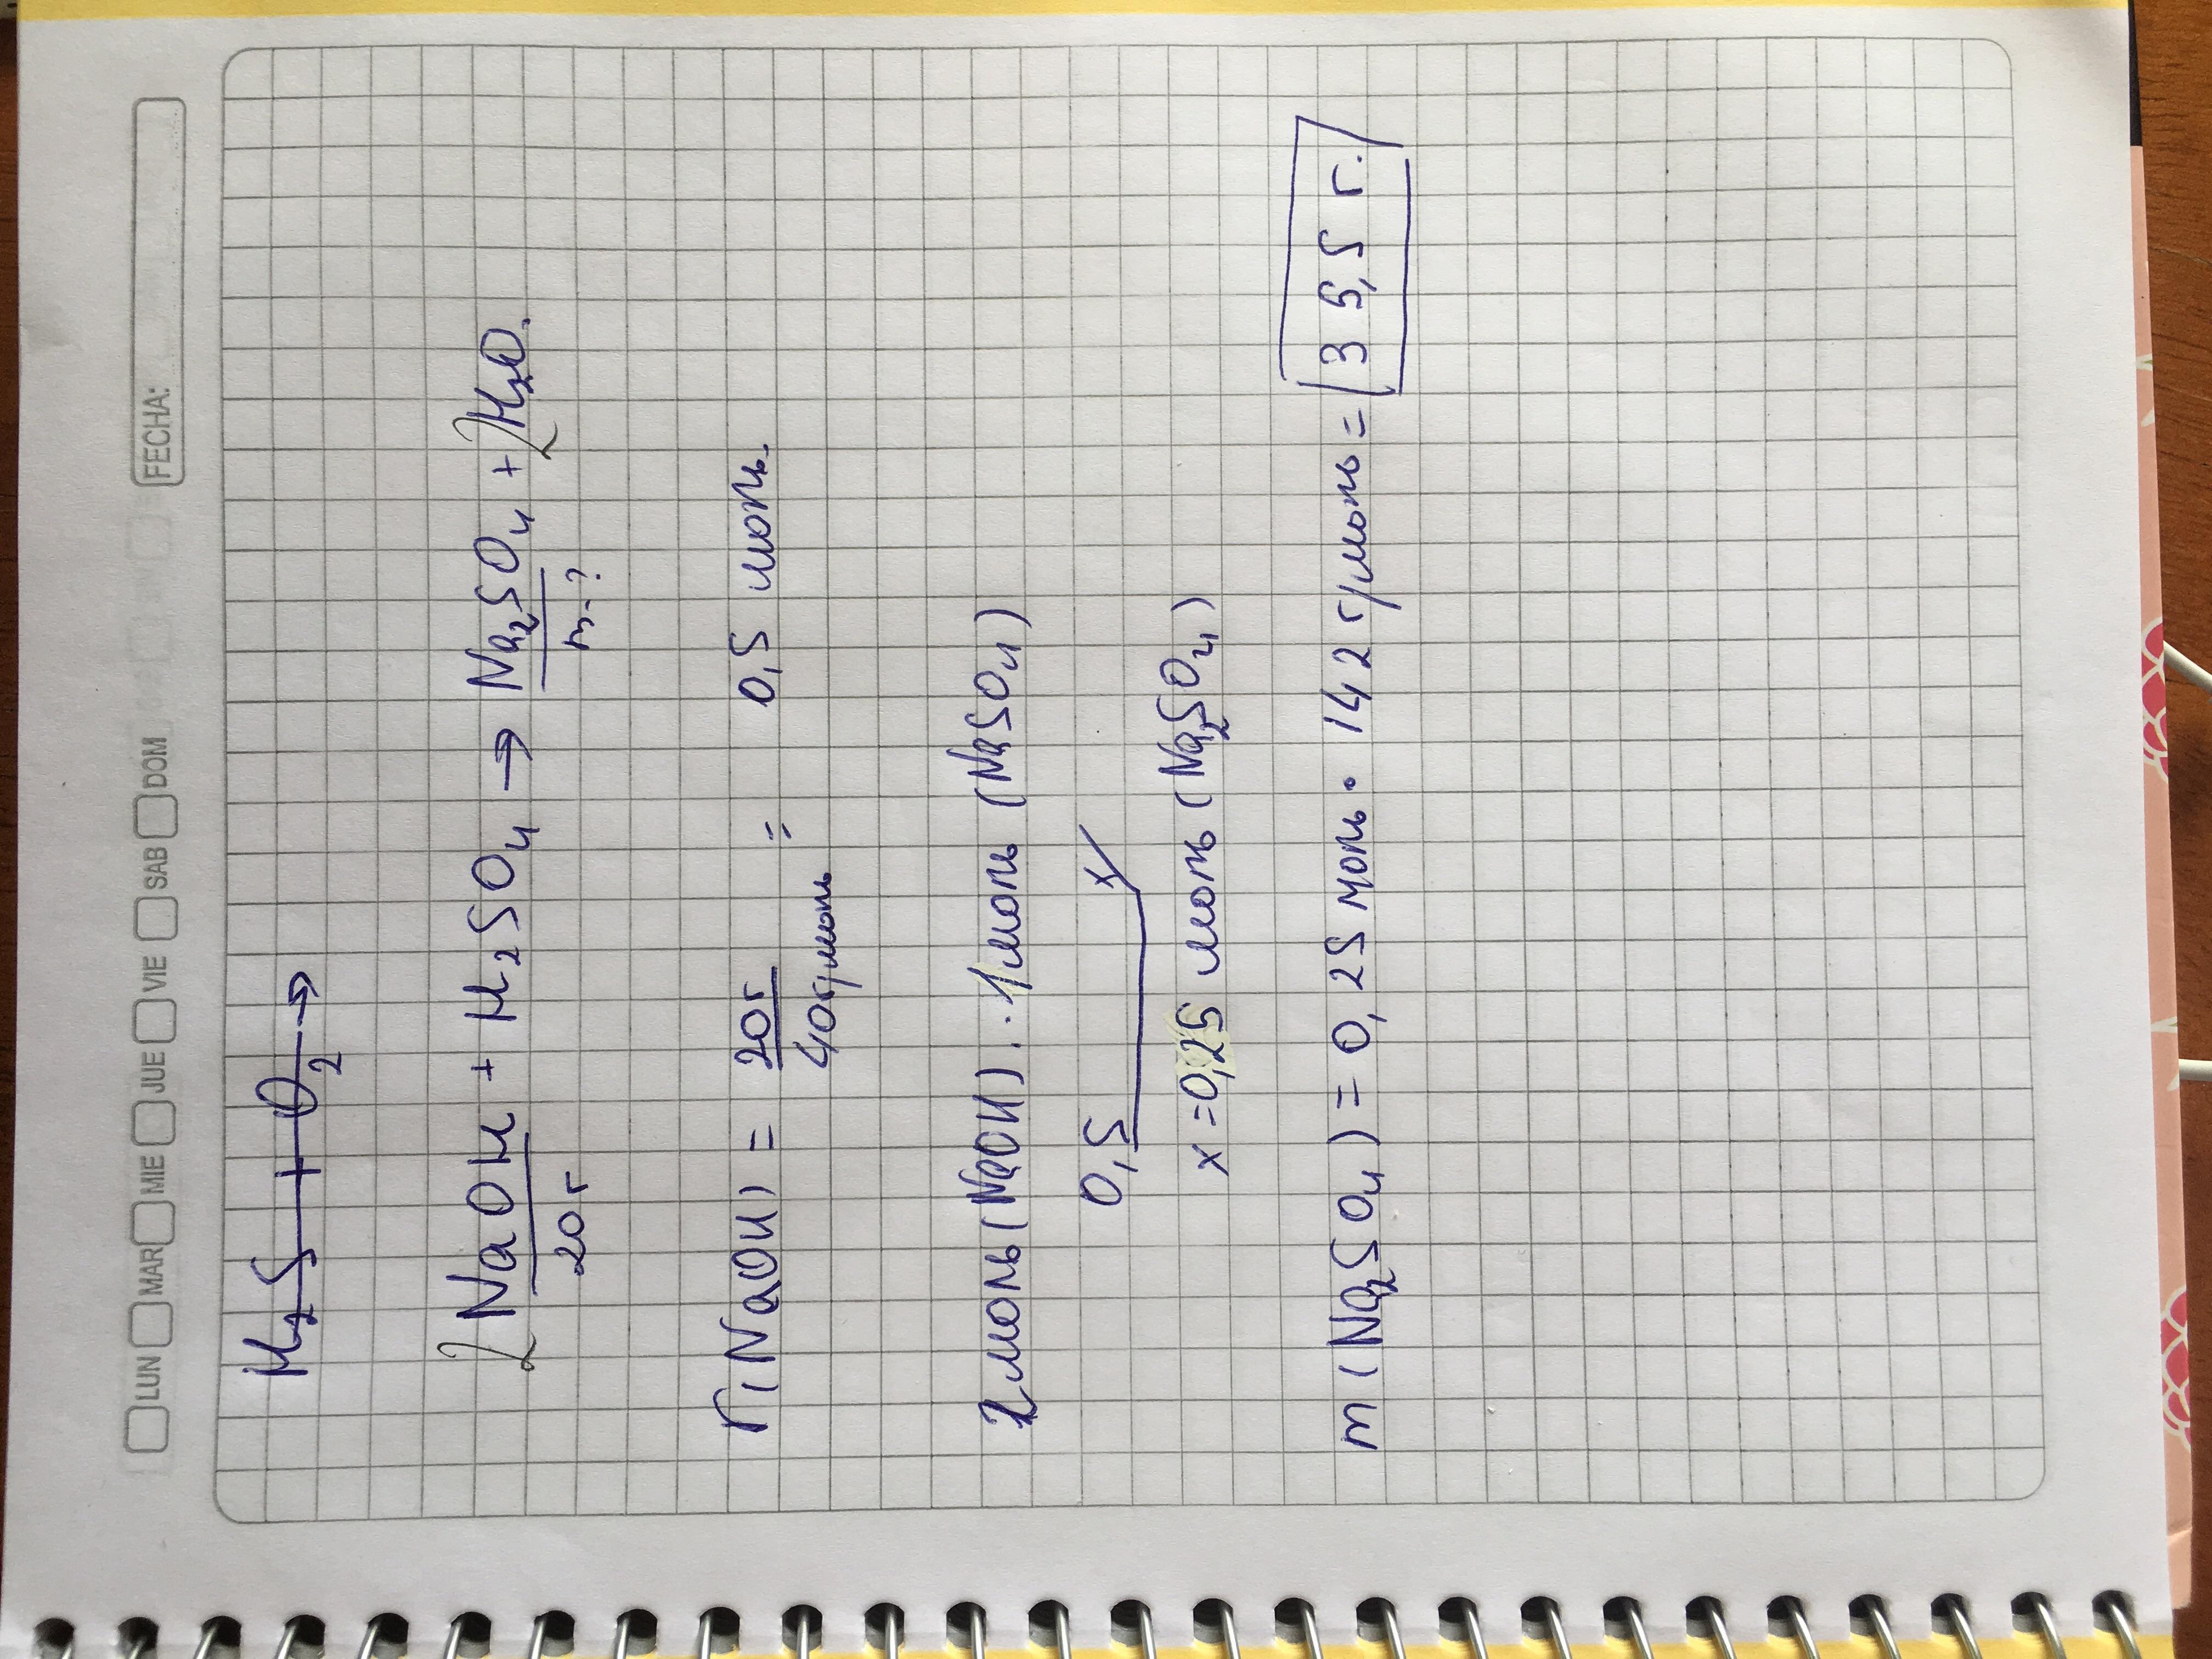 LUN MAR MIE JUE VIE SAB DOM FECHA:
H₂S + O₂ →
2NaOH + H₂SO₄ → Na₂SO₄ + 2H₂O.
20 г m-?
n(NaOH) = 20г / 40г/моль = 0,5 моль.
2 моль (NaOH) . . 1 моль (NaSO₄)
0,5 x
x = 0,25 моль (Na₂SO₄)
m (Na₂SO₄) = 0,25 моль · 142 г/моль = 35,5 г.